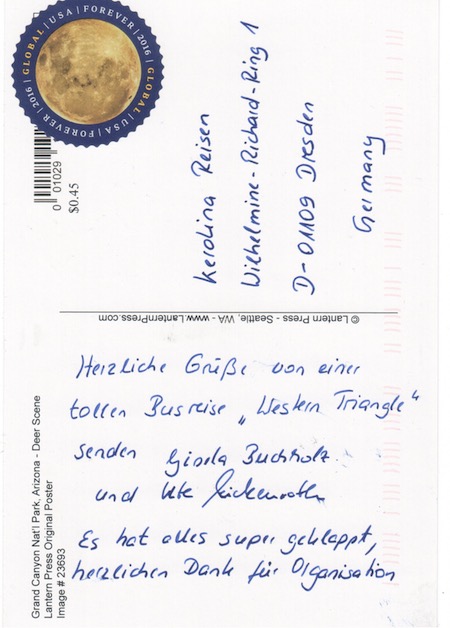 GLOBAL | USA | FOREVER | 2016 | GLOBAL | USA | FOREVER | 2016 |
0 01029
$0.45
Kerolina Reisen
Wilhelmine-Richard-Ring 1
D-01109 Dresden
Germany
© Lantern Press - Seattle, WA - www.LanternPress.com
Herzliche Grüße von einer
tollen Busreise „Western Triangle“
senden Gisela Buchholz
und Ute
Es hat alles super geklappt,
herzlichen Dank für Organisation
Grand Canyon Nat'l Park, Arizona - Deer Scene
Lantern Press Original Poster
Image # 23693